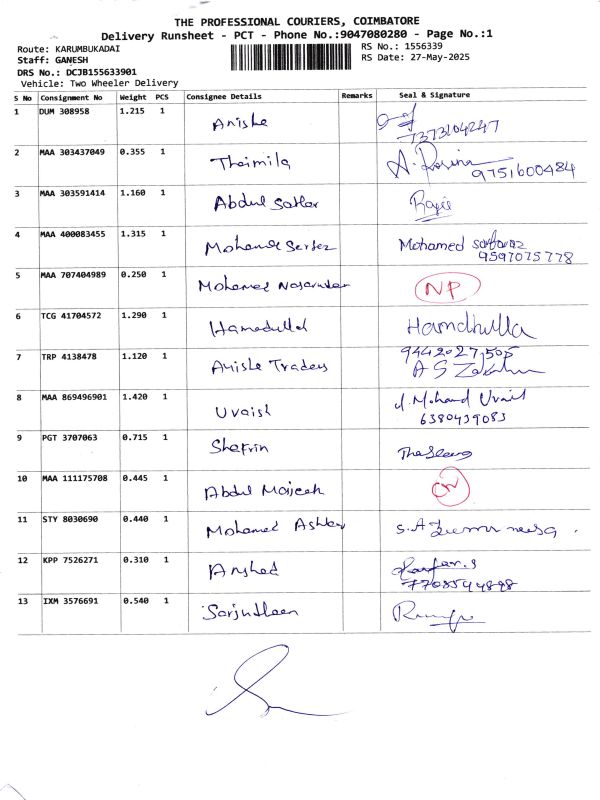 THE PROFESSIONAL COURIERS, COIMBATORE
Delivery Runsheet - PCT - Phone No.:9047080280 - Page No.:1
Route: KARUMBUKADAI
RS No.: 1556339
Staff: GANESH
RS Date: 27-May-2025
DRS No.: DCJB155633901
Vehicle: Two Wheeler Delivery
S No Consignment No Weight PCS Consignee Details Remarks Seal & Signature
1 DUM 308958 1.215 1 Anishe
7373104247
2 MAA 303437049 0.355 1 Thaimila
9751600484
3 MAA 303591414 1.160 1 Abdul Sattar
4 MAA 400083455 1.315 1 Mohamed Serfez Mohamed sarfaraz
9597075778
5 MAA 707404989 0.250 1 Mohamed NP
6 TCG 41704572 1.290 1 Hamedullah Hamdhulla
9442027505
7 TRP 4138478 1.120 1 Anishe Traders A S
8 MAA 869496901 1.420 1 Uvaish Mohamd Uvais
6380439083
9 PGT 3707063 0.715 1 Shefrin
10 MAA 111175708 0.445 1 Abdul Majeeth
11 STY 8030690 0.440 1 Mohamed Ashker S.A
12 KPP 7526271 0.310 1 Arshad
7708544898
13 IXM 3576691 0.540 1 Sarjudheen